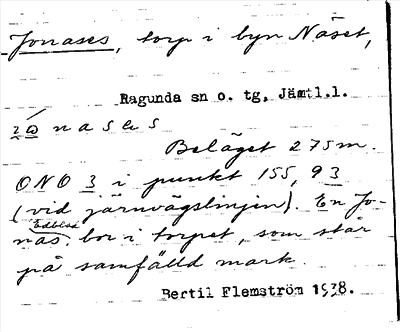 Jonases, torp i byn Näset,
Ragunda sn o. tg, Jämtl.l.
Beläget 275 m.
ONO 3 i punkt 155, 93
(vid järnvägslinjen). En Jo-
nas Edblad bor i torpet, som står
på samfälld mark.
Bertil Flemström 1938.